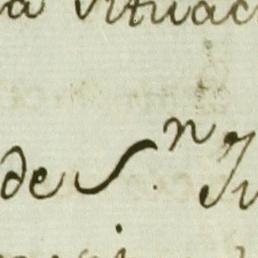 a situac
de S.ⁿ Ju